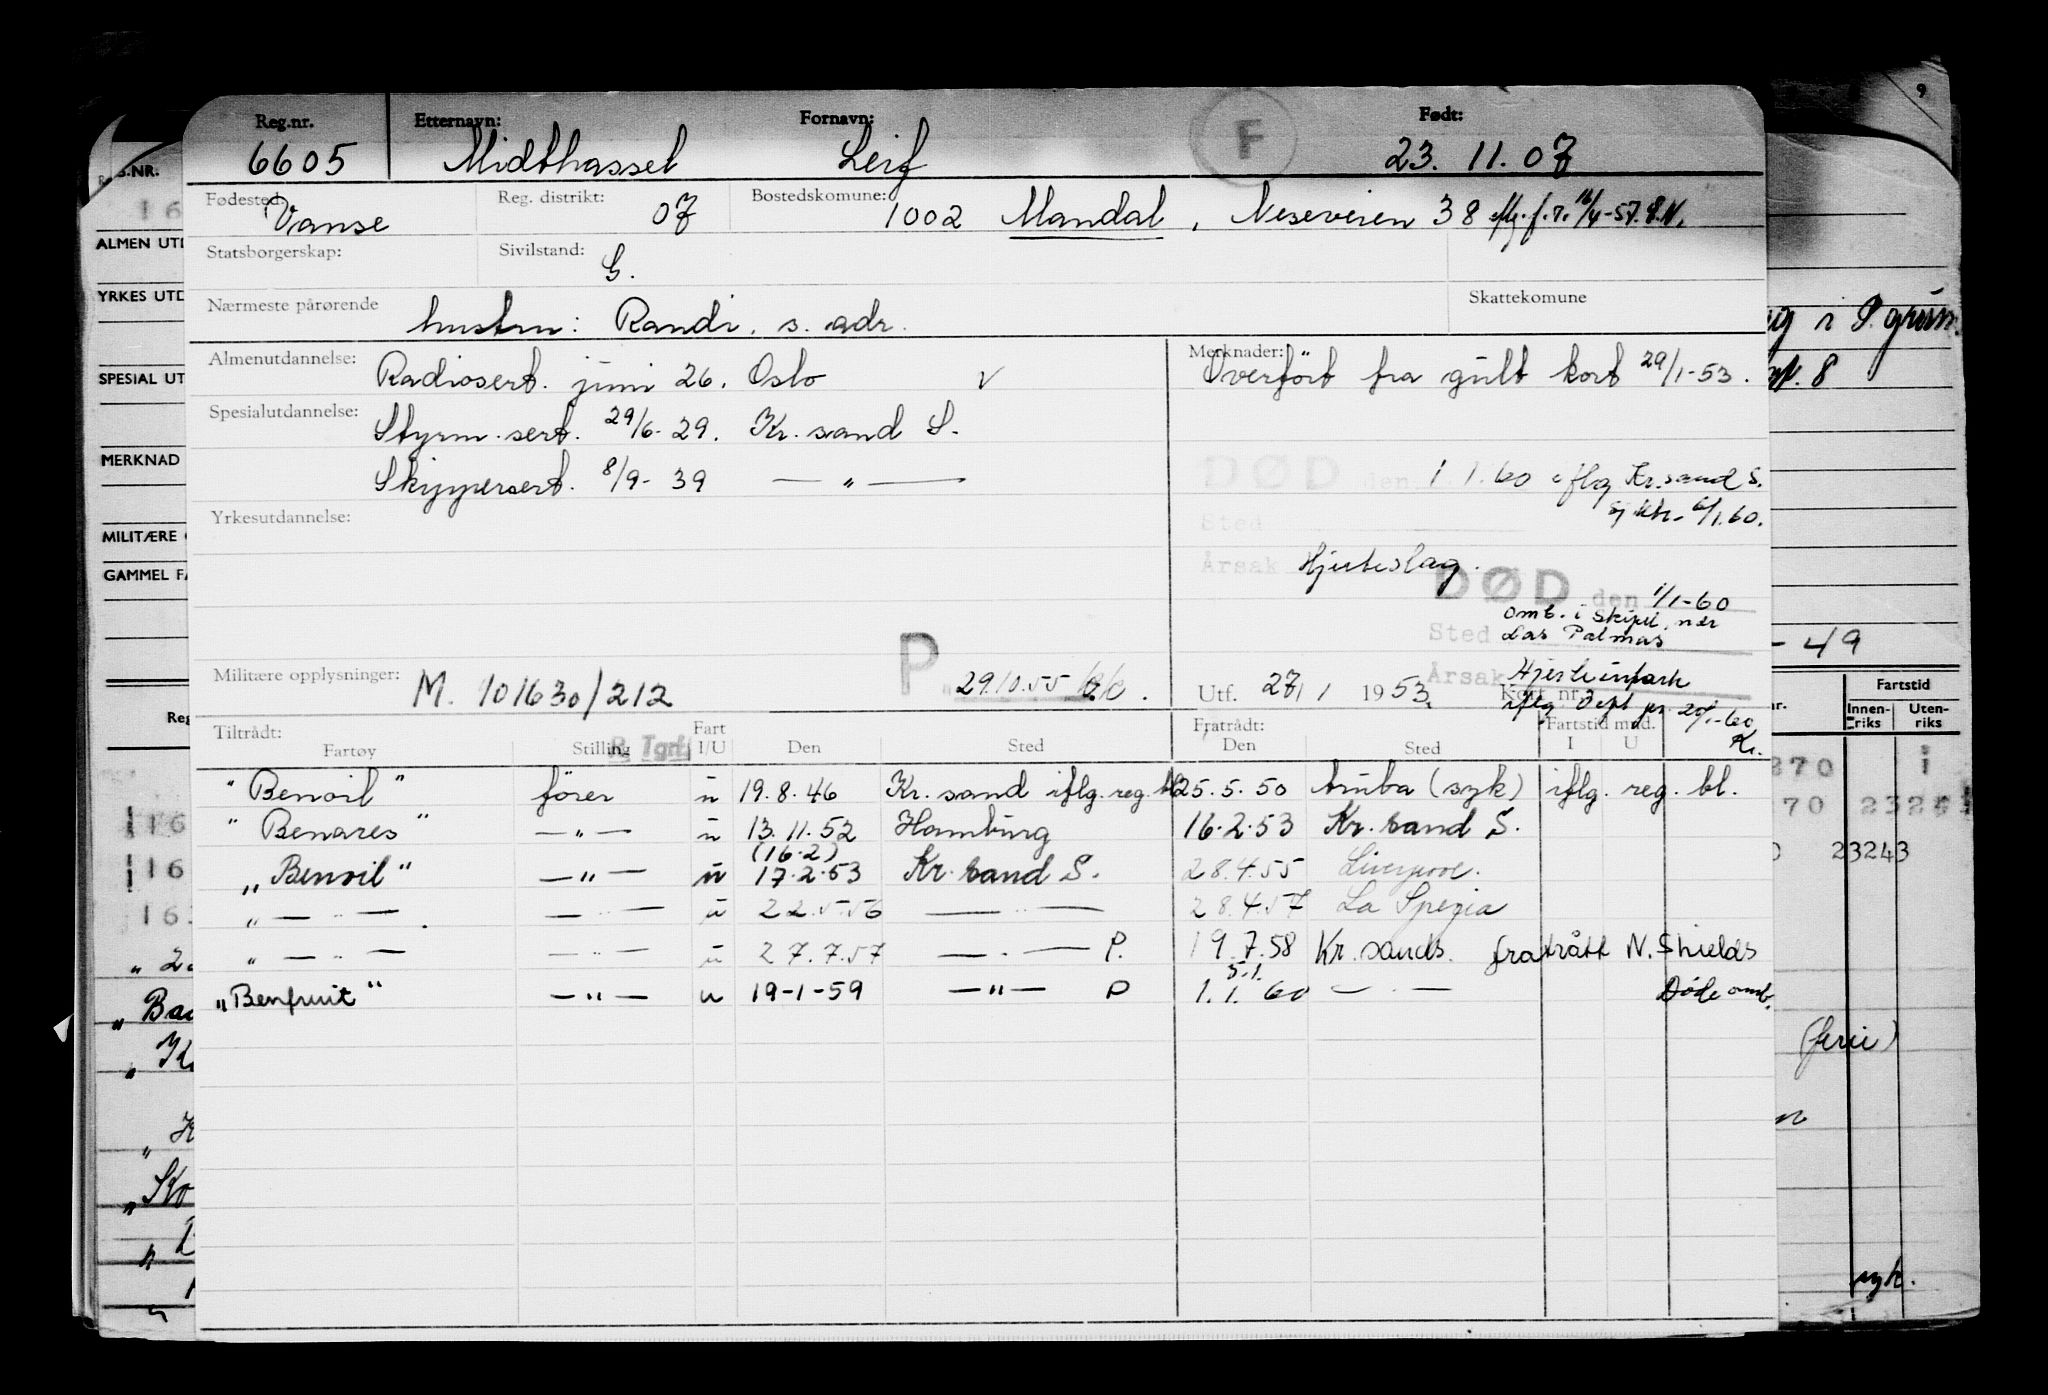 Reg.nr. Etternavn: Fornavn: F Født:
6605 Midthassel Leif 23. 11. 07
Fødested: Vanse Reg. distrikt: 07 Bostedskomune: 1002 Mandal, Neseveien 38
Statsborgerskap: Sivilstand: G.
Nærmeste pårørende hustru: Randi. s. adr. Skattekomune
Almenutdannelse: Radiosert. juni 26. Oslo Merknader: Överfört fra gult kort 29/1-53.
Spesialutdannelse: Styrm. sert. 29/6-29. Kr. sand S.
Skippersert. 8/9-39 — „ —
DØD den 1.1.60 iflg Kr.sand S.
6/1.60.
Yrkesutdannelse:
Sted
Årsak Hjerteslag.
DØD den 1/1-60
Sted omb. i skipet, nær
Las Palmas
Årsak Hjerteinfarkt
Militære opplysninger: M. 101630/212 P 29.10.55 Utf. 27/1 1953. Kort nr.
iflg
Tiltrådt: Fratrådt: Fartstid mnd.
Fartøy Stilling R.Tgrf. Fart I/U Den Sted Den Sted I U
"Benoil" förer u 19.8.46 Kr. sand iflg. reg. bl. 25.5.50 Aruba (syk) iflg. reg. bl.
"Benares" — „ — u 13.11.52 Hamburg 16.2.53 Kr. sand S.
(16.2)
„Benoil" — „ — u 17.2.53 Kr. sand S. 28.4.55 Liverpool.
„ — „ — — „ — u 22.5.56 — „ — 28.4.57 La Spezia
„ — „ — — „ — u 27.7.57 — „ — P. 19.7.58 Kr. sands. fratrått N. Shields
5.1.
„Benfruit" — „ — u 19-1-59 — „ — P 1.1.60 — „ — Døde omb.
S.NR.
ALMEN UTD
YRKES UTD
SPESIAL UT
MERKNAD
MILITÆRE
GAMMEL FA
Reg
9
8
- 49
Fartstid
nr. Innen-riks Uten-riks
270 1
70
23243
(ferie)
syk.